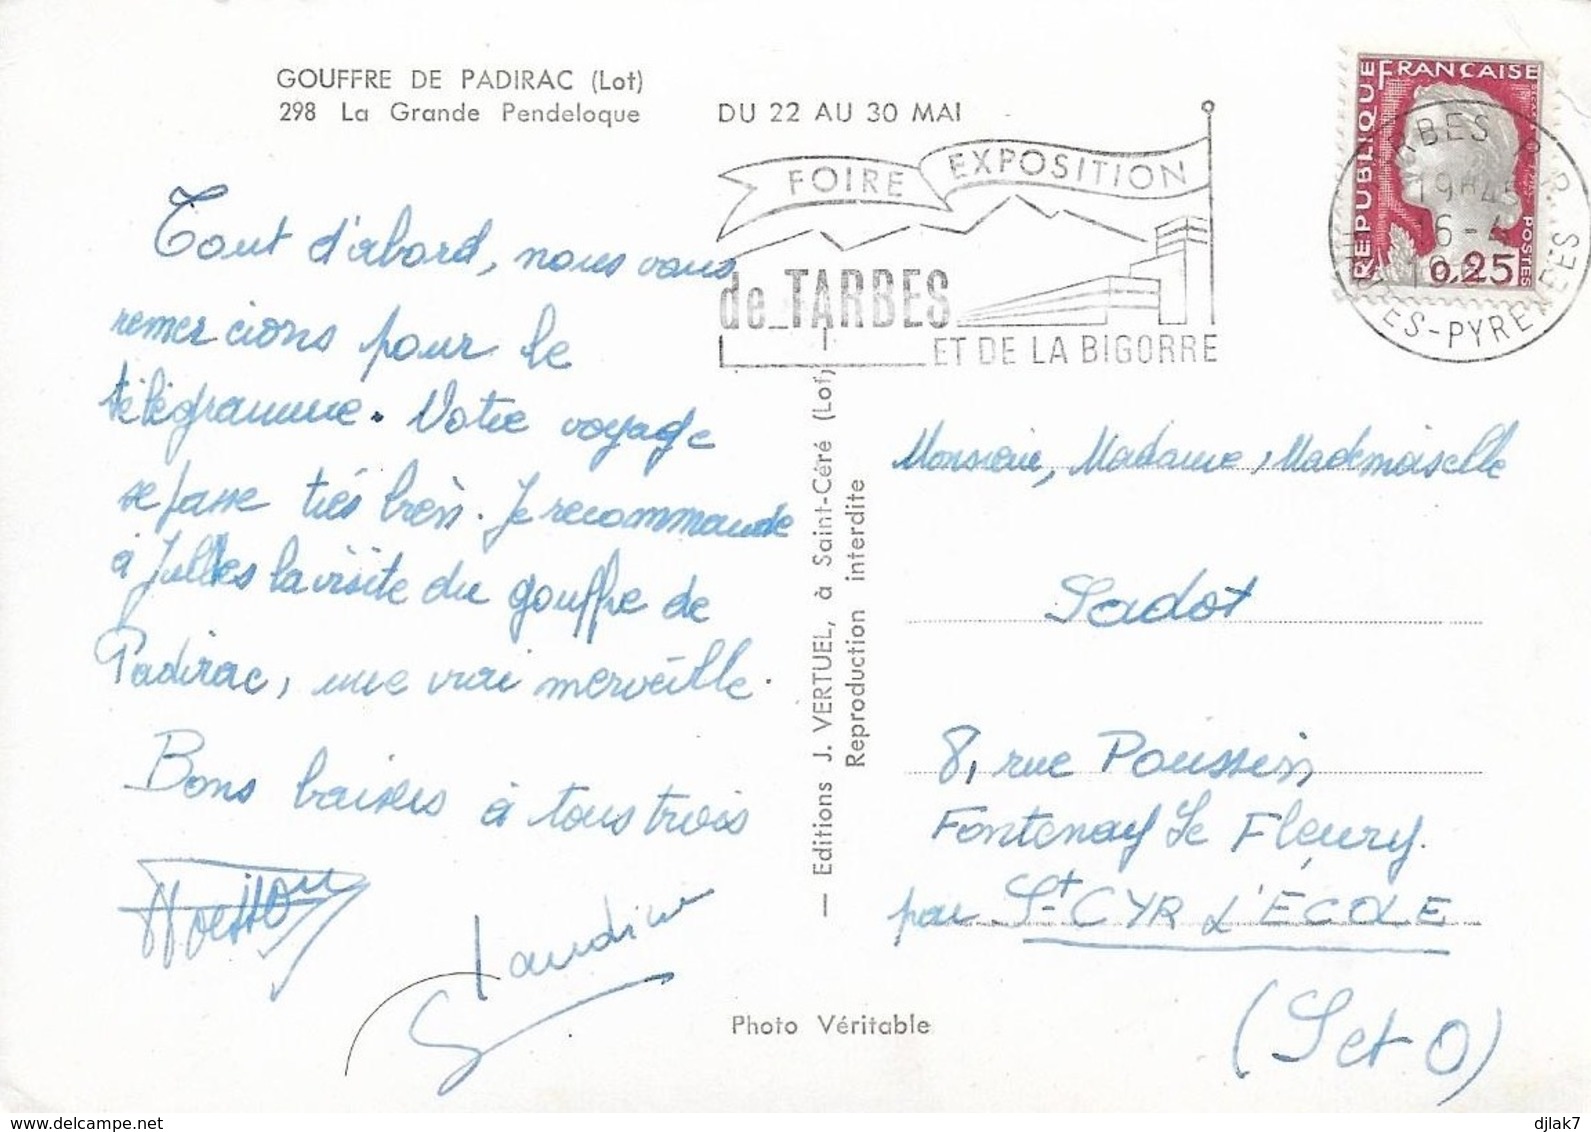 GOUFFRE DE PADIRAC (Lot)
298 La Grande Pendeloque
DU 22 AU 30 MAI
FOIRE EXPOSITION
de TARBES
ET DE LA BIGORRE
RÉPUBLIQUE FRANÇAISE
POSTES
0,25
19H45
16-4
ES-PYRENEES
Tout d'abord, nous vous
remercions pour le
télégramme. Votre voyage
se passe très bien. Je recommande
à Julles la visite du gouffre de
Padirac, une vrai merveille.
Bons baisers à tous trois
— Editions J. VERTUEL, à Saint-Céré (Lot)
Reproduction interdite
Monsieur, Madame, Mademoiselle
Sadot
8, rue Poussin
Fontenay Le Fleury.
par St CYR L'ÉCOLE
(S et O)
Photo Véritable
www.delcampe.net
djlak7